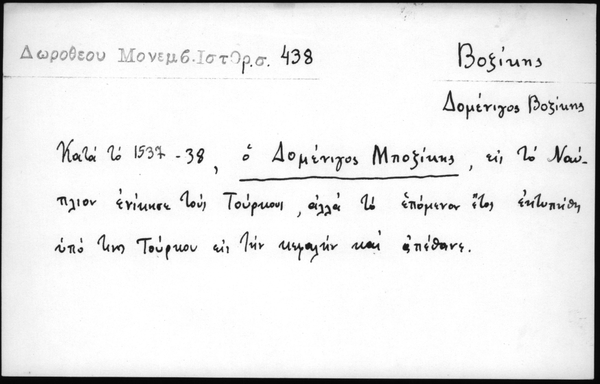 Δωροθεου Μονεμβ. Ιστορ. σ. 438
Βοξίκης
Δομένιγος Βοξίκης
Κατά τό 1537-38, ὁ Δομένιγος Μποξίκης, εἰς τό Ναύ-
πλιον ἐνίκησε τούς Τούρκους, ἀλλά τό ἑπόμενον ἔτος ἐκτυπήθη
ὑπό τινος Τούρκου εἰς τήν κεφαλήν καί ἀπέθανε.